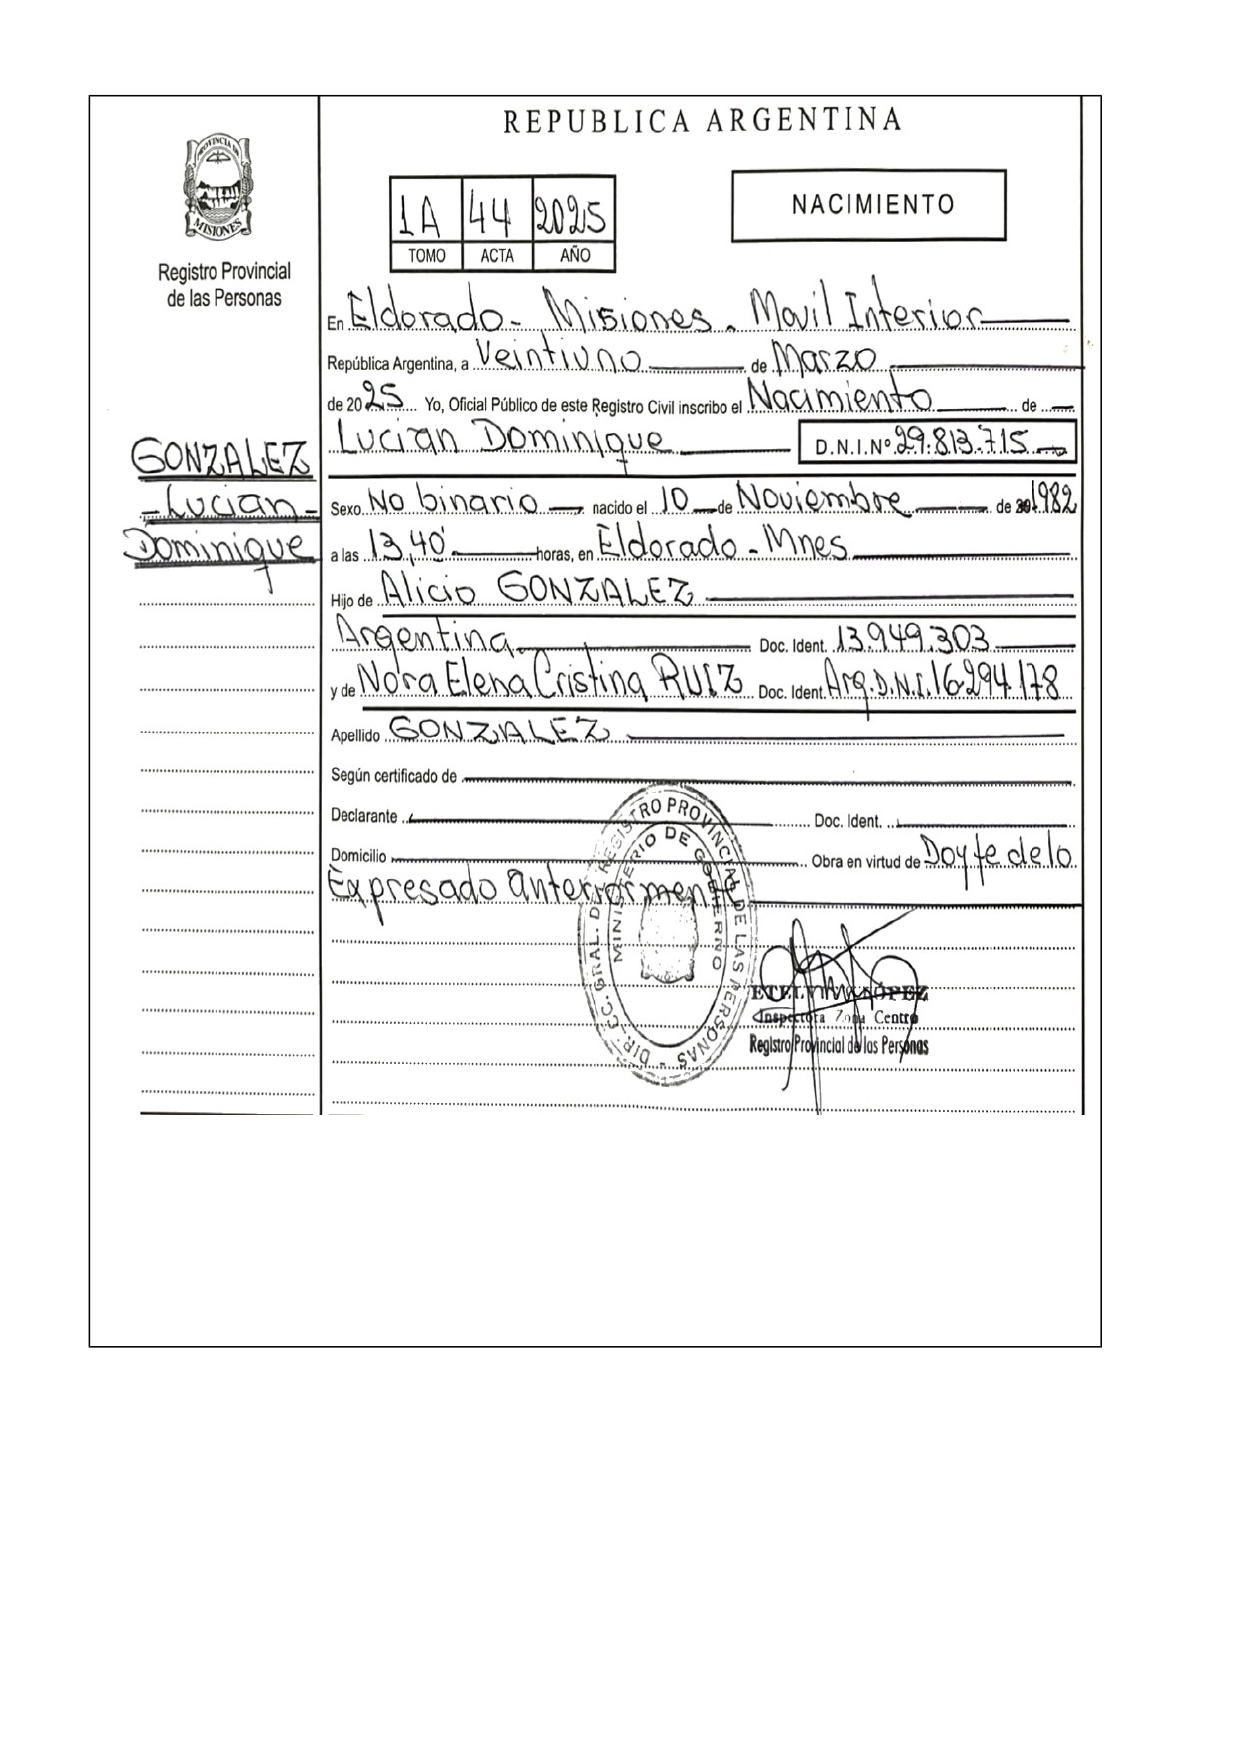 REPUBLICA ARGENTINA
PROVINCIA DE
MISIONES
Registro Provincial
de las Personas
1A 44 2025
TOMO ACTA AÑO
NACIMIENTO
En Eldorado - Misiones. Movil Interior
República Argentina, a Veintiuno de Marzo
de 2025 Yo, Oficial Público de este Registro Civil inscribo el Nacimiento de
Lucian Dominique D.N.I.Nº 29.813.715
GONZALEZ
- Lucian -
Dominique
Sexo No binario nacido el 10 de Noviembre de 1982
a las 13,40' horas, en Eldorado - Mnes
Hijo de Alicio GONZALEZ
Argentina Doc. Ident. 13.949.303
y de Nora Elena Cristina RUIZ Doc. Ident. Arg. D.N.I. 16294.178
Apellido GONZALEZ
Según certificado de
Declarante Doc. Ident.
Domicilio Obra en virtud de Doy fe de lo
Expresado anteriormente
DIR. CC. GRAL. DEL REGISTRO PROVINCIAL DE LAS PERSONAS -
MINISTERIO DE GOBIERNO
LÓPEZ
Inspectora Zona Centro
Registro Provincial de las Personas